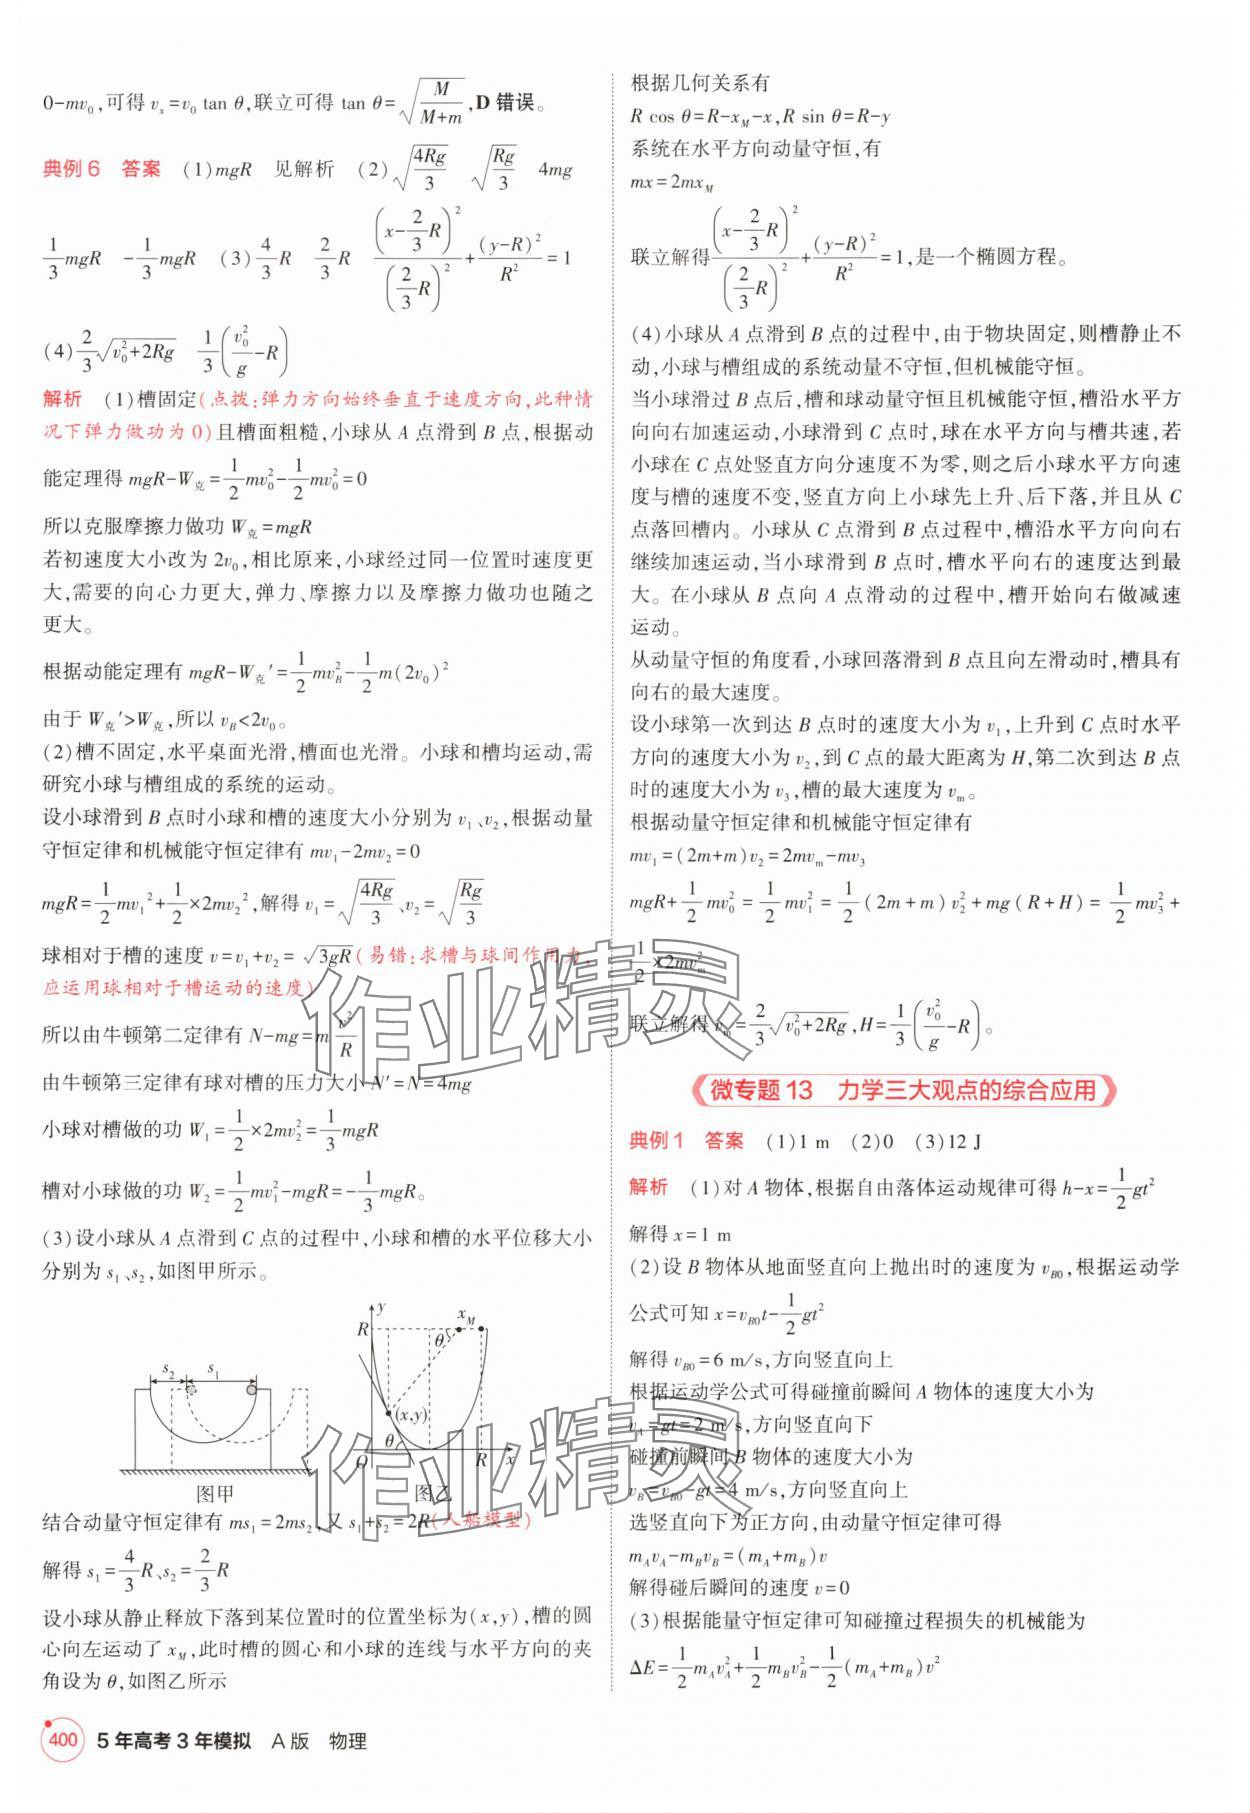 0-mv₀,可得 vₓ=v₀ tan θ,联立可得 tan θ=√(M/(M+m)),D 错误。
典例6 答案 (1)mgR 见解析 (2)√(4Rg/3) √(Rg/3) 4mg
1/3 mgR -1/3 mgR (3)4/3 R 2/3 R (x-2/3 R)²/(2/3 R)²+(y-R)²/R²=1
(4)2/3 √(v₀²+2Rg) 1/3(v₀²/g-R)
解析 (1)槽固定(点拨:弹力方向始终垂直于速度方向,此种情
况下弹力做功为0)且槽面粗糙,小球从 A 点滑到 B 点,根据动
能定理得 mgR-W克=1/2 mv₀²-1/2 mv₀²=0
所以克服摩擦力做功 W克=mgR
若初速度大小改为 2v₀,相比原来,小球经过同一位置时速度更
大,需要的向心力更大,弹力、摩擦力以及摩擦力做功也随之
更大。
根据动能定理有 mgR-W克′=1/2 mv_B²-1/2 m(2v₀)²
由于 W克′>W克,所以 v_B<2v₀。
(2)槽不固定,水平桌面光滑,槽面也光滑。小球和槽均运动,需
研究小球与槽组成的系统的运动。
设小球滑到 B 点时小球和槽的速度大小分别为 v₁、v₂,根据动量
守恒定律和机械能守恒定律有 mv₁-2mv₂=0
mgR=1/2 mv₁²+1/2×2mv₂²,解得 v₁=√(4Rg/3)、v₂=√(Rg/3)
球相对于槽的速度 v=v₁+v₂=√(3gR)(易错:求槽与球间作用力,
应运用球相对于槽运动的速度)
所以由牛顿第二定律有 N-mg=m v²/R
由牛顿第三定律有球对槽的压力大小 N′=N=4mg
小球对槽做的功 W₁=1/2×2mv₂²=1/3 mgR
槽对小球做的功 W₂=1/2 mv₁²-mgR=-1/3 mgR。
(3)设小球从 A 点滑到 C 点的过程中,小球和槽的水平位移大小
分别为 s₁、s₂,如图甲所示。
s₂ s₁
图甲
y
R
x_M
θ
(x,y)
θ
O R x
图乙
结合动量守恒定律有 ms₁=2ms₂,又 s₁+s₂=2R(人船模型)
解得 s₁=4/3 R、s₂=2/3 R
设小球从静止释放下落到某位置时的位置坐标为(x,y),槽的圆
心向左运动了 x_M,此时槽的圆心和小球的连线与水平方向的夹
角设为 θ,如图乙所示
根据几何关系有
R cos θ=R-x_M-x,R sin θ=R-y
系统在水平方向动量守恒,有
mx=2mx_M
联立解得 (x-2/3 R)²/(2/3 R)²+(y-R)²/R²=1,是一个椭圆方程。
(4)小球从 A 点滑到 B 点的过程中,由于物块固定,则槽静止不
动,小球与槽组成的系统动量不守恒,但机械能守恒。
当小球滑过 B 点后,槽和球动量守恒且机械能守恒,槽沿水平方
向向右加速运动,小球滑到 C 点时,球在水平方向与槽共速,若
小球在 C 点处竖直方向分速度不为零,则之后小球水平方向速
度与槽的速度不变,竖直方向上小球先上升、后下落,并且从 C
点落回槽内。小球从 C 点滑到 B 点过程中,槽沿水平方向向右
继续加速运动,当小球滑到 B 点时,槽水平向右的速度达到最
大。在小球从 B 点向 A 点滑动的过程中,槽开始向右做减速
运动。
从动量守恒的角度看,小球回落滑到 B 点且向左滑动时,槽具有
向右的最大速度。
设小球第一次到达 B 点时的速度大小为 v₁,上升到 C 点时水平
方向的速度大小为 v₂,到 C 点的最大距离为 H,第二次到达 B 点
时的速度大小为 v₃,槽的最大速度为 vₘ。
根据动量守恒定律和机械能守恒定律有
mv₁=(2m+m)v₂=2mvₘ-mv₃
mgR+1/2 mv₀²=1/2 mv₁²=1/2(2m+m)v₂²+mg(R+H)=1/2 mv₃²+
1/2×2mvₘ²
联立解得 vₘ=2/3 √(v₀²+2Rg),H=1/3(v₀²/g-R)。
微专题13 力学三大观点的综合应用
典例1 答案 (1)1 m (2)0 (3)12 J
解析 (1)对 A 物体,根据自由落体运动规律可得 h-x=1/2 gt²
解得 x=1 m
(2)设 B 物体从地面竖直向上抛出时的速度为 v_B0,根据运动学
公式可知 x=v_B0 t-1/2 gt²
解得 v_B0=6 m/s,方向竖直向上
根据运动学公式可得碰撞前瞬间 A 物体的速度大小为
v_A=gt=2 m/s,方向竖直向下
碰撞前瞬间 B 物体的速度大小为
v_B=v_B0-gt=4 m/s,方向竖直向上
选竖直向下为正方向,由动量守恒定律可得
m_A v_A-m_B v_B=(m_A+m_B)v
解得碰后瞬间的速度 v=0
(3)根据能量守恒定律可知碰撞过程损失的机械能为
ΔE=1/2 m_A v_A²+1/2 m_B v_B²-1/2(m_A+m_B)v²
作业精灵
作业精灵
400 5年高考3年模拟 A版 物理